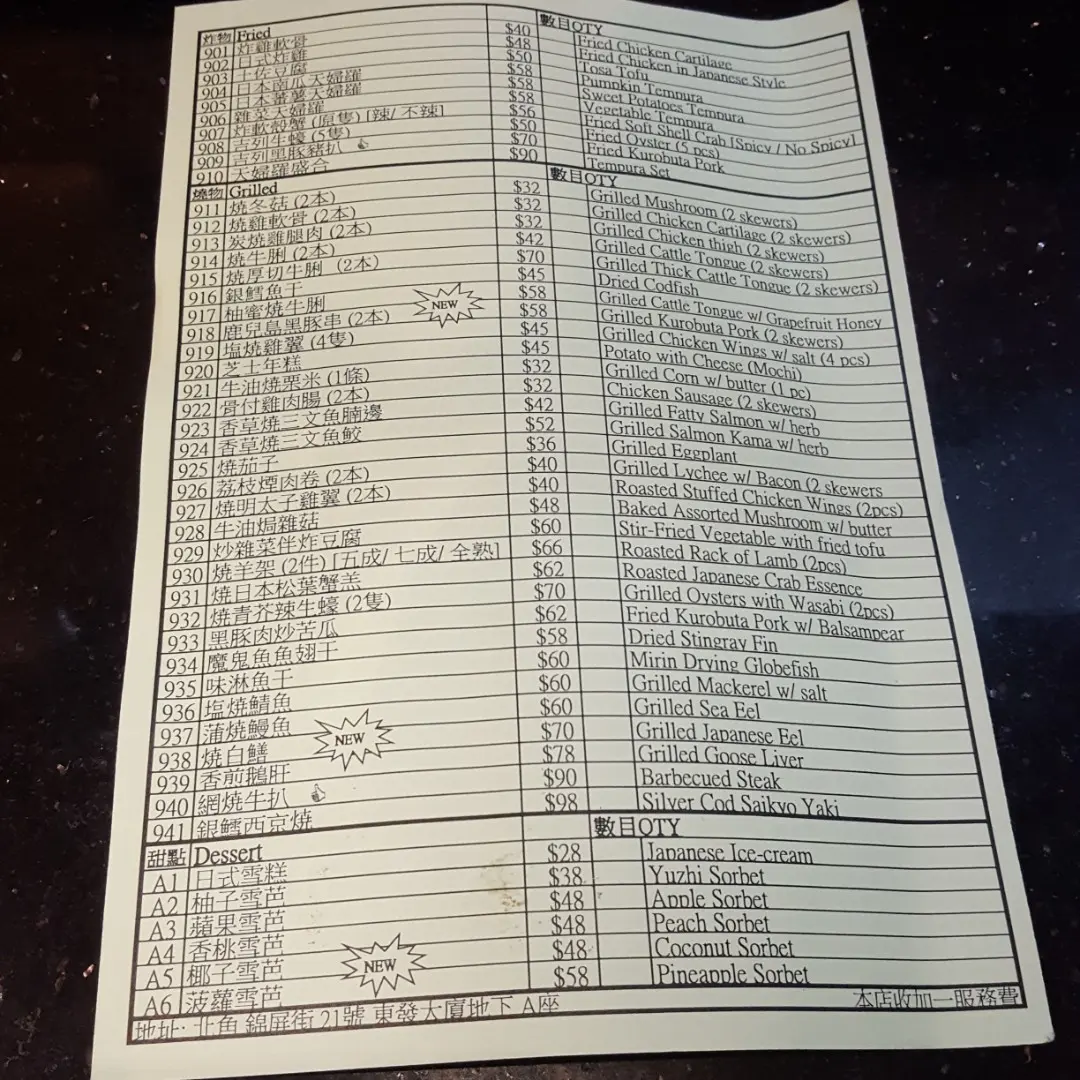 炸物 Fried 數目QTY
901 炸雞軟骨 $40 Fried Chicken Cartilage
902 日式炸雞 $48 Fried Chicken in Japanese Style
903 土佐豆腐 $50 Tosa Tofu
904 日本南瓜天婦羅 $58 Pumpkin Tempura
905 日本蕃薯天婦羅 $58 Sweet Potatoes Tempura
906 雜菜天婦羅 $58 Vegetable Tempura
907 炸軟殼蟹 (原隻) [辣/ 不辣] $56 Fried Soft Shell Crab [Spicy / No Spicy]
908 吉列生蠔 (5隻) $50 Fried Oyster (5 pcs)
909 吉列黑豚豬扒 $70 Fried Kurobuta Pork
910 天婦羅盛合 $90 Tempura Set
燒物 Grilled 數目QTY
911 燒冬菇 (2本) $32 Grilled Mushroom (2 skewers)
912 燒雞軟骨 (2本) $32 Grilled Chicken Cartilage (2 skewers)
913 炭燒雞腿肉 (2本) $32 Grilled Chicken thigh (2 skewers)
914 燒牛脷 (2本) $42 Grilled Cattle Tongue (2 skewers)
915 燒厚切牛脷 (2本) $70 Grilled Thick Cattle Tongue (2 skewers)
916 銀鱈魚干 $45 Dried Codfish
917 柚蜜燒牛脷 NEW $58 Grilled Cattle Tongue w/ Grapefruit Honey
918 鹿兒島黑豚串 (2本) $58 Grilled Kurobuta Pork (2 skewers)
919 塩燒雞翼 (4隻) $45 Grilled Chicken Wings w/ salt (4 pcs)
920 芝士年糕 $45 Potato with Cheese (Mochi)
921 牛油燒粟米 (1條) $32 Grilled Corn w/ butter (1 pc)
922 骨付雞肉腸 (2本) $32 Chicken Sausage (2 skewers)
923 香草燒三文魚腩邊 $42 Grilled Fatty Salmon w/ herb
924 香草燒三文魚鮫 $52 Grilled Salmon Kama w/ herb
925 燒茄子 $36 Grilled Eggplant
926 荔枝煙肉卷 (2本) $40 Grilled Lychee w/ Bacon (2 skewers
927 燒明太子雞翼 (2本) $40 Roasted Stuffed Chicken Wings (2pcs)
928 牛油焗雜菇 $48 Baked Assorted Mushroom w/ butter
929 炒雜菜伴炸豆腐 $60 Stir-Fried Vegetable with fried tofu
930 燒羊架 (2件) [五成/ 七成/ 全熟] $66 Roasted Rack of Lamb (2pcs)
931 燒日本松葉蟹羔 $62 Roasted Japanese Crab Essence
932 燒青芥辣生蠔 (2隻) $70 Grilled Oysters with Wasabi (2pcs)
933 黑豚肉炒苦瓜 $62 Fried Kurobuta Pork w/ Balsampear
934 魔鬼魚魚翅干 $58 Dried Stingray Fin
935 味淋魚干 $60 Mirin Drying Globefish
936 塩燒鯖魚 $60 Grilled Mackerel w/ salt
937 蒲燒鰻魚 $60 Grilled Sea Eel
938 燒白鱔 NEW $70 Grilled Japanese Eel
939 香煎鵝肝 $78 Grilled Goose Liver
940 網燒牛扒 $90 Barbecued Steak
941 銀鱈西京燒 $98 Silver Cod Saikyo Yaki
甜點 Dessert 數目QTY
A1 日式雪糕 $28 Japanese Ice-cream
A2 柚子雪芭 $38 Yuzhi Sorbet
A3 蘋果雪芭 $48 Apple Sorbet
A4 香桃雪芭 $48 Peach Sorbet
A5 椰子雪芭 NEW $48 Coconut Sorbet
A6 菠蘿雪芭 $58 Pineapple Sorbet
地址: 北角 錦屏街 21號 東發大廈地下 A座 本店收加一服務費